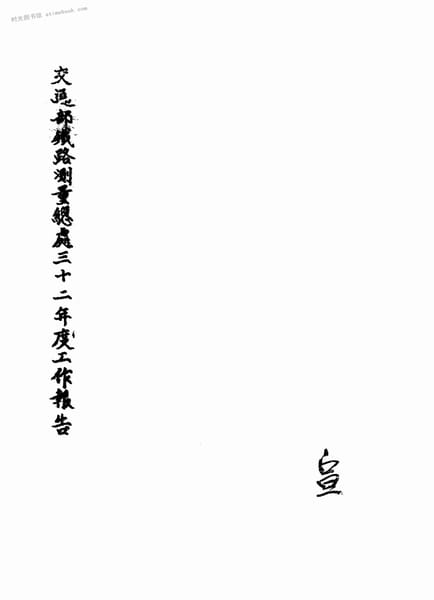 时光图书馆 atimebook.com
交通部鐵路測量總處三十二年度工作報告